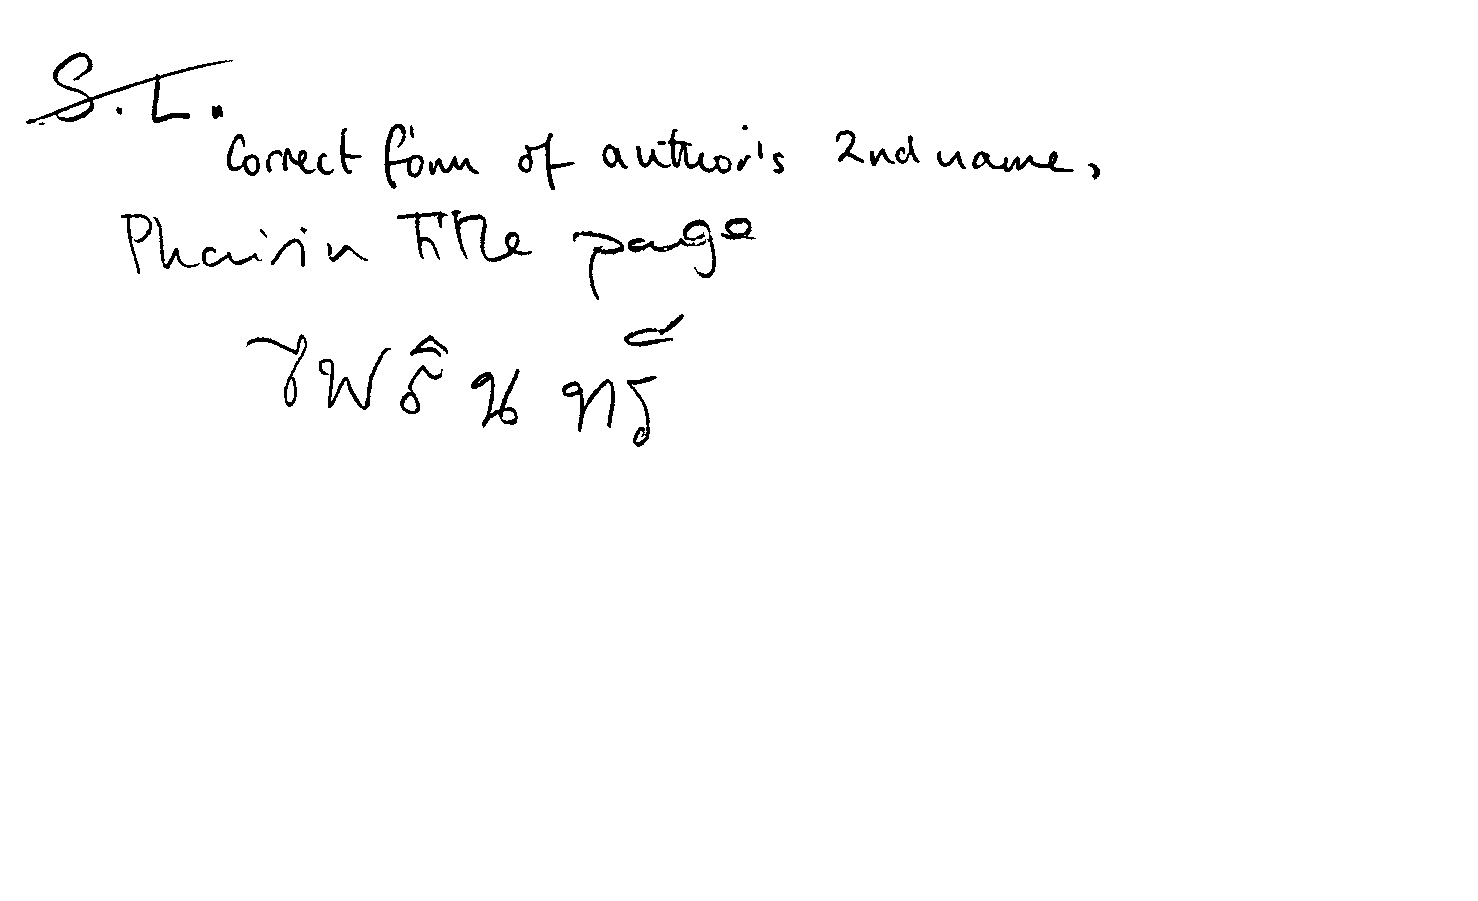 S.L.
Correct form of author's 2nd name,
Phairin Title page
ไพรินทร์